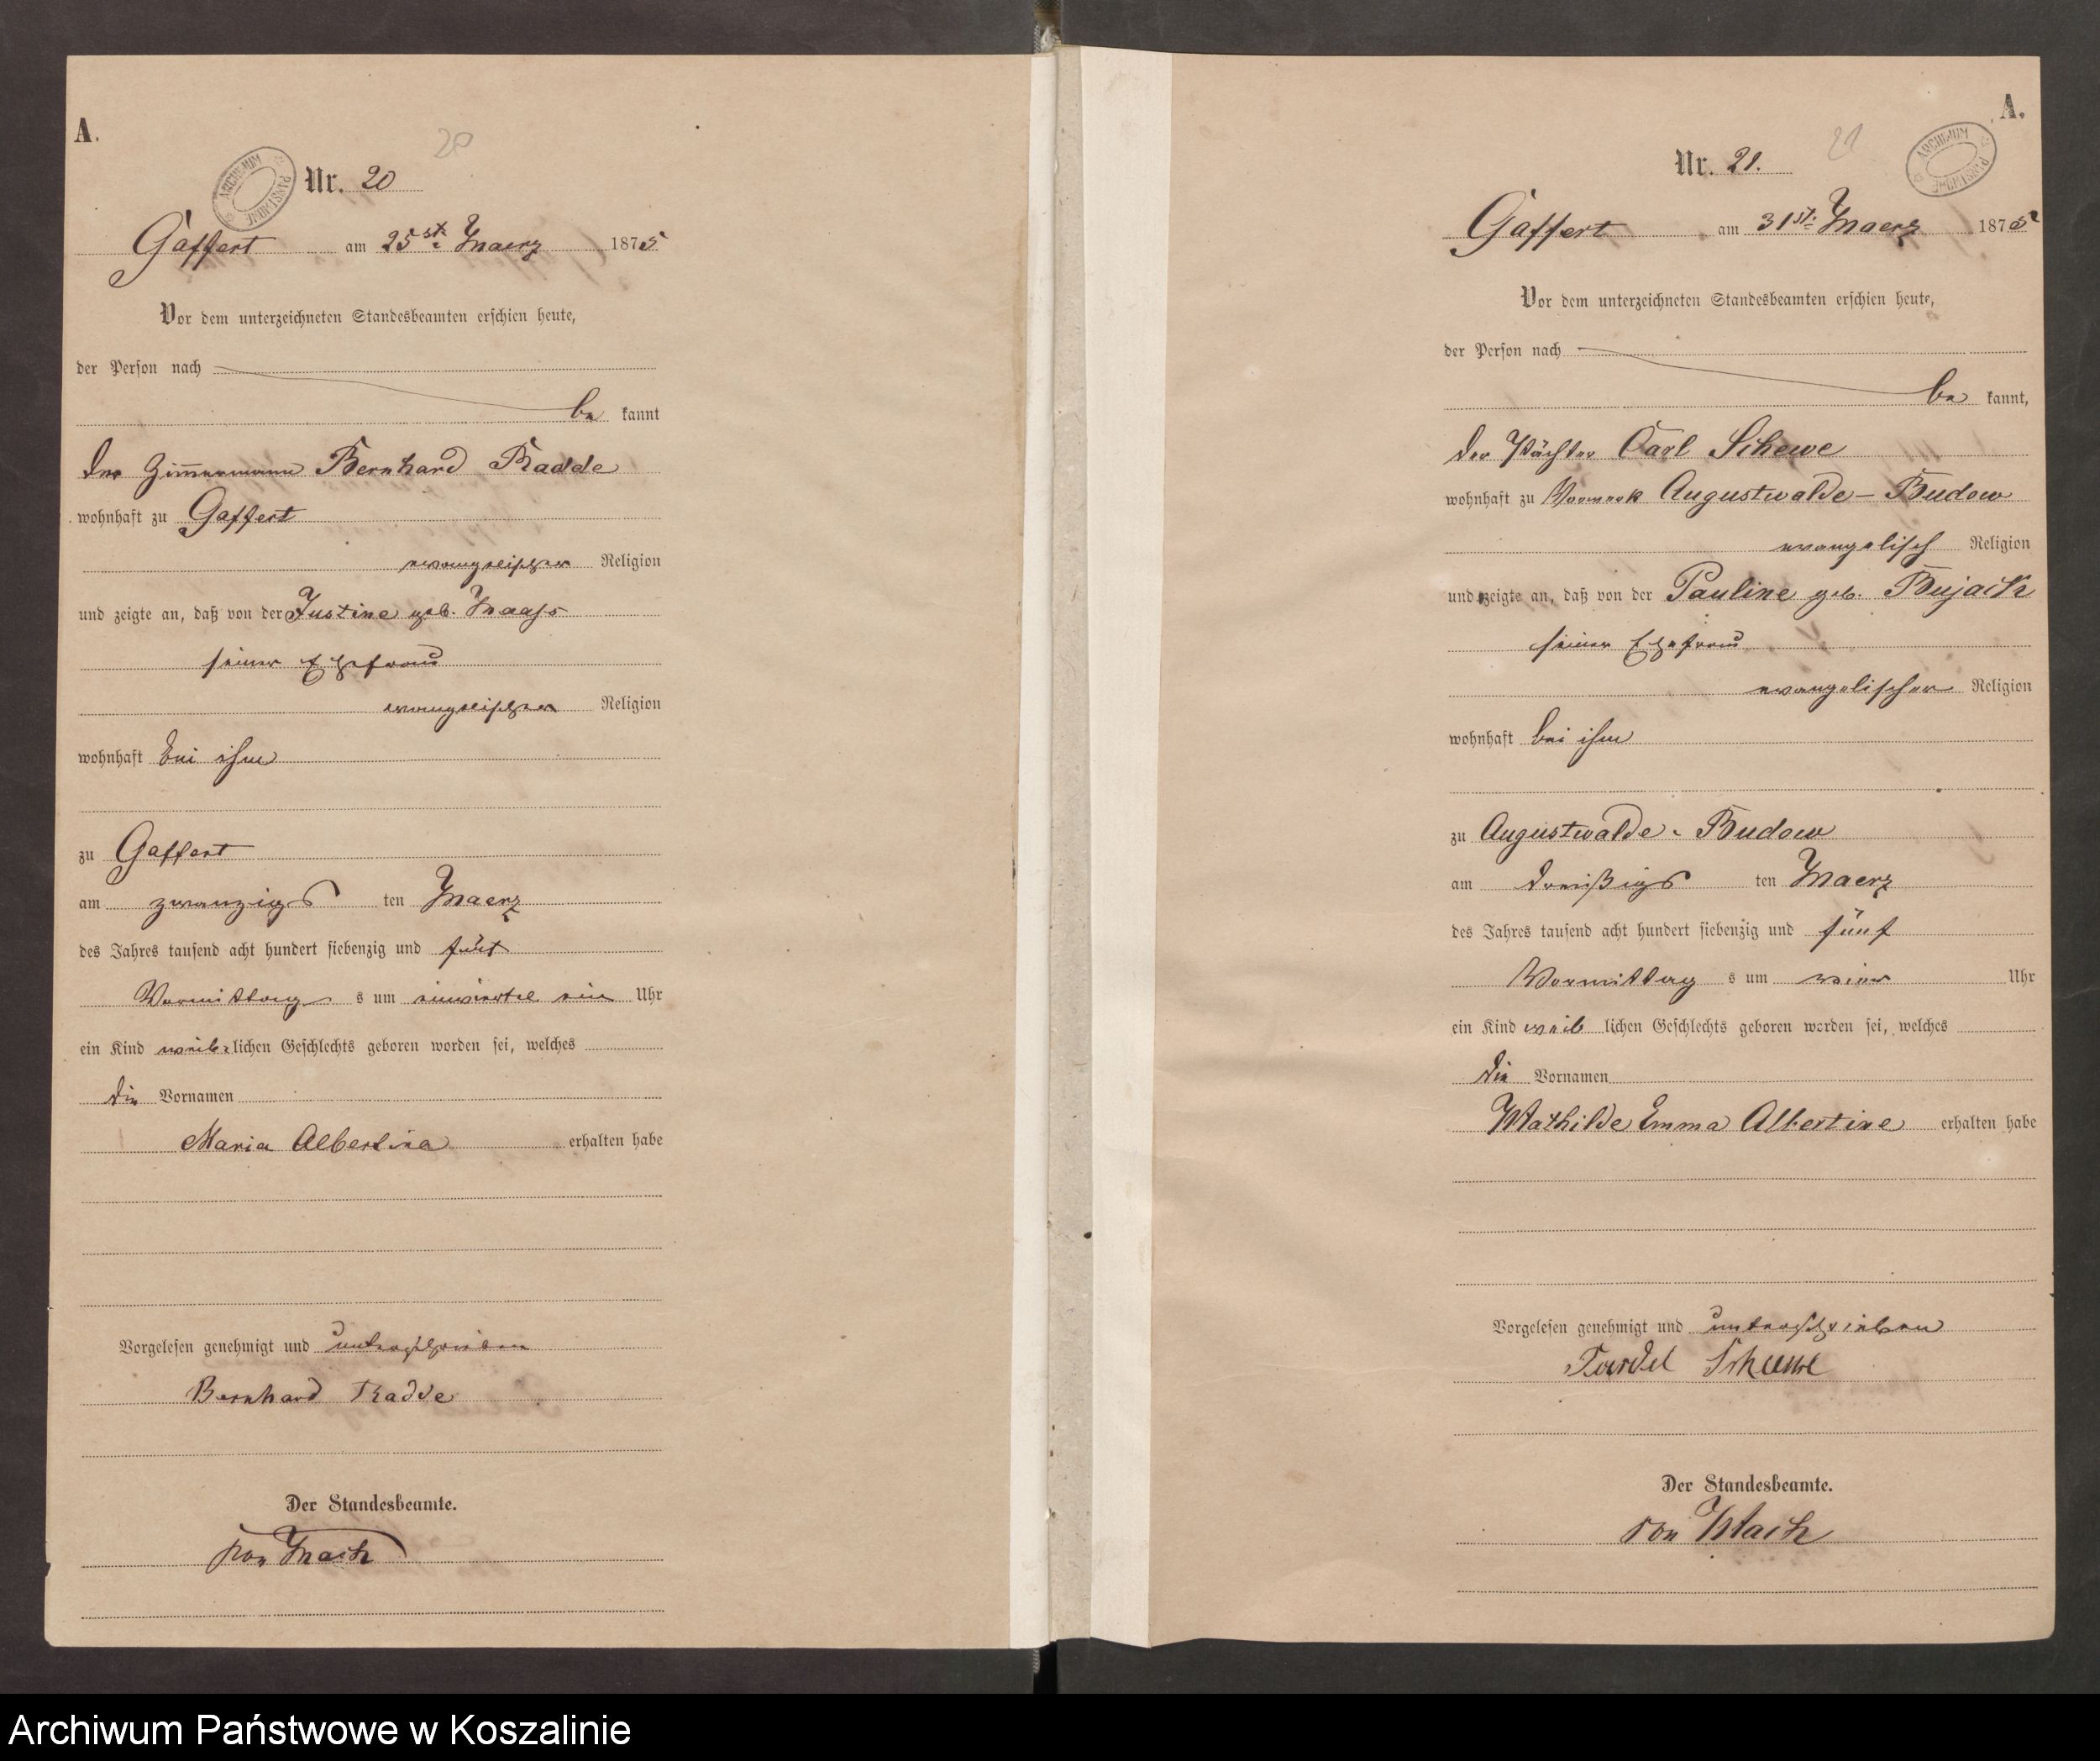 A.
20
ARCHIWUM PAŃSTWOWE
Nr. 20
Gaffert am 25st. Maerz 1875
Vor dem unterzeichneten Standesbeamten erschien heute,
der Person nach
be kannt
der Zimmermann Bernhard Radde
wohnhaft zu Gaffert
evangelischer Religion
und zeigte an, daß von der Justine geb. Maass
seiner Ehefrau
evangelischer Religion
wohnhaft bei ihm
zu Gaffert
am zwanzigs ten Maerz
des Jahres tausend acht hundert siebenzig und fünf
Vormittag s um ein Uhr
ein Kind weib lichen Geschlechts geboren worden sei, welches
die Vornamen
Maria Albertine erhalten habe
Vorgelesen genehmigt und unterschrieben
Bernhard Radde
Der Standesbeamte.
von Mach
A.
21
ARCHIWUM PAŃSTWOWE
Nr. 21.
Gaffert am 31st. Maerz 1875
Vor dem unterzeichneten Standesbeamten erschien heute,
der Person nach
be kannt,
der Pächter Carl Schewe
wohnhaft zu Vorwerk Augustwalde - Budow
evangelisch Religion
und zeigte an, daß von der Pauline geb. Bujack
seiner Ehefrau
evangelischer Religion
wohnhaft bei ihm
zu Augustwalde - Budow
am dreißigs ten Maerz
des Jahres tausend acht hundert siebenzig und fünf
Vormittag s um vier Uhr
ein Kind weib lichen Geschlechts geboren worden sei, welches
die Vornamen
Mathilde Emma Albertine erhalten habe
Vorgelesen genehmigt und unterschrieben
Der Standesbeamte.
von Mach
Archiwum Państwowe w Koszalinie